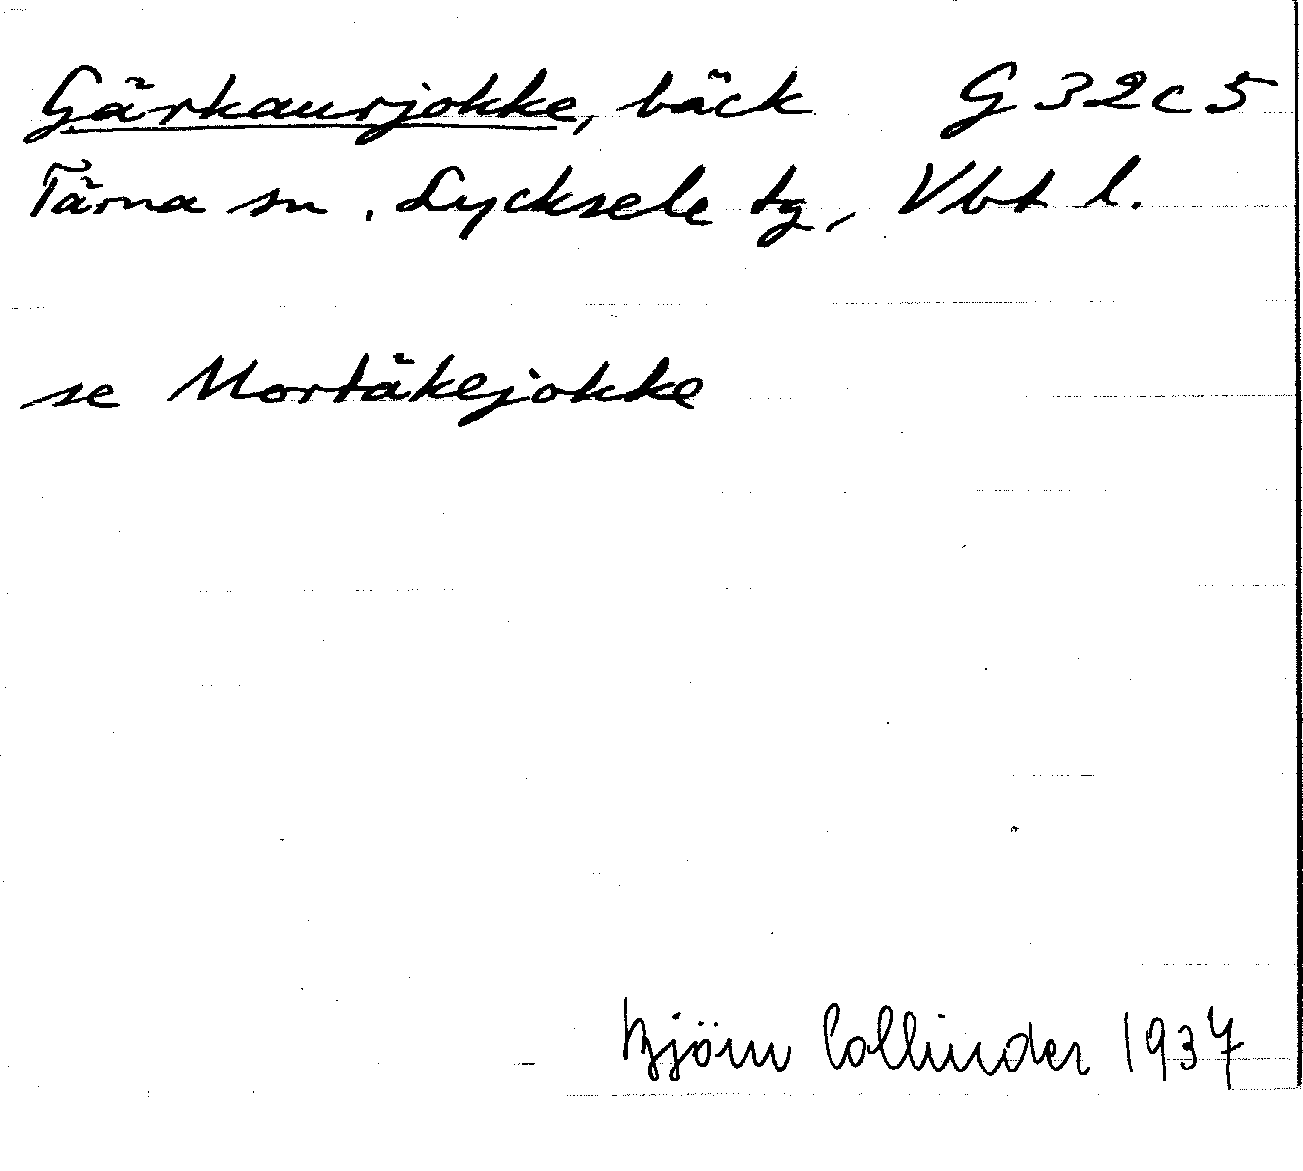 Gärkaurjokke, bäck G 32 c 5
Tärna sn. Lycksele tg, Vbt l.
se Mortäkejokke
Björn Collinder 1937